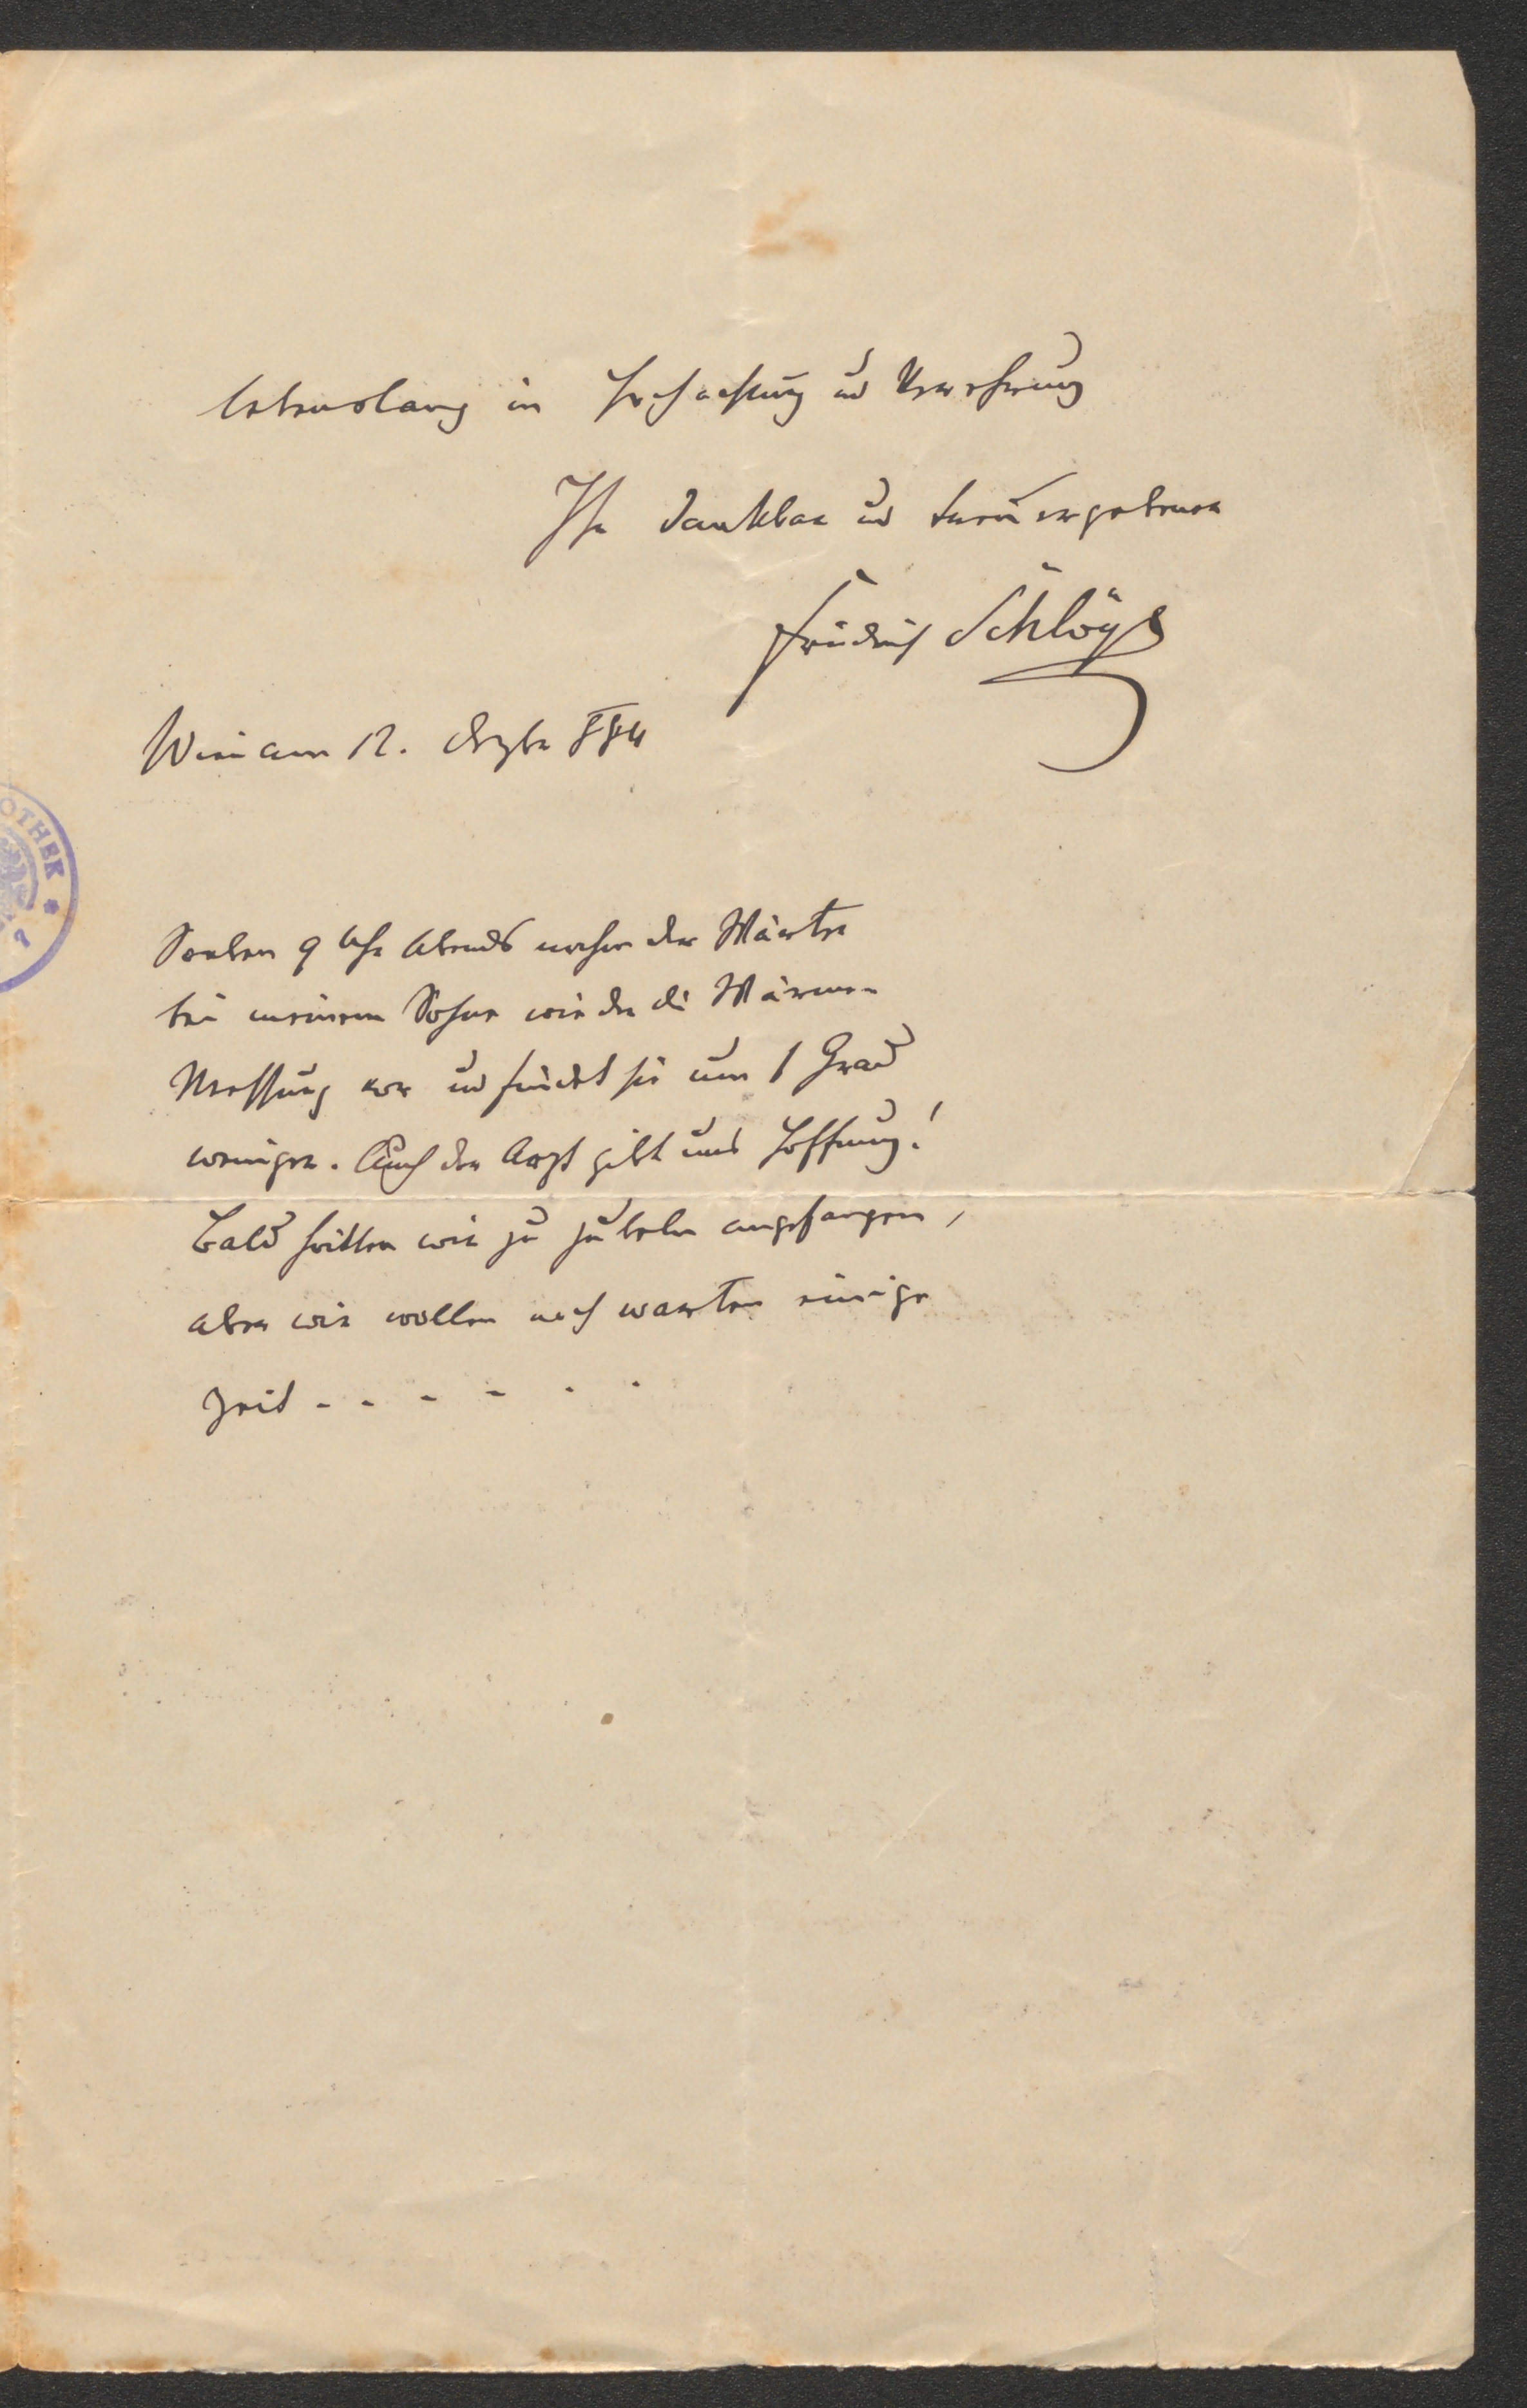 lebenslang in Hochachtung und Verehrung
Ihr dankbar und treu ergebener
Friedrich Schlögl
Wien am 12. Dezbr 884
OTHEK *
Soeben 9 Uhr Abends nahm der Wärter
bei meinem Sohne wieder die Wärme-
Messung vor und findet sie um 1 Grad
weniger. Auch der Arzt gibt uns Hoffnung!
Bald hätten wir zu jubeln angefangen,
aber wir wollen noch warten einige
Zeit - - - - - -